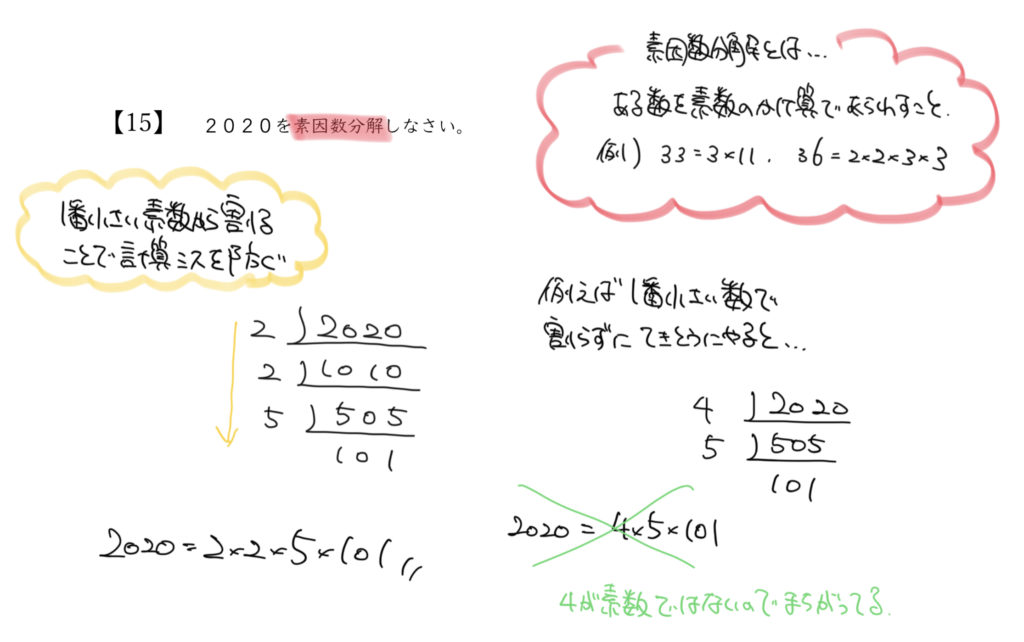 【15】 2020を素因数分解しなさい。
素因数分解とは…
ある数を素数のかけ算であらわすこと.
例) 33=3×11. 36=2×2×3×3
1番小さい素数から割る
ことで計算ミスを防ぐ
2 ) 2020
2 ) 1010
5 ) 505
101
2020=2×2×5×101,,
例えば1番小さい数で
割らずにてきとうにやると…
4 ) 2020
5 ) 505
101
2020=4×5×101
4が素数ではないのでまちがってる.